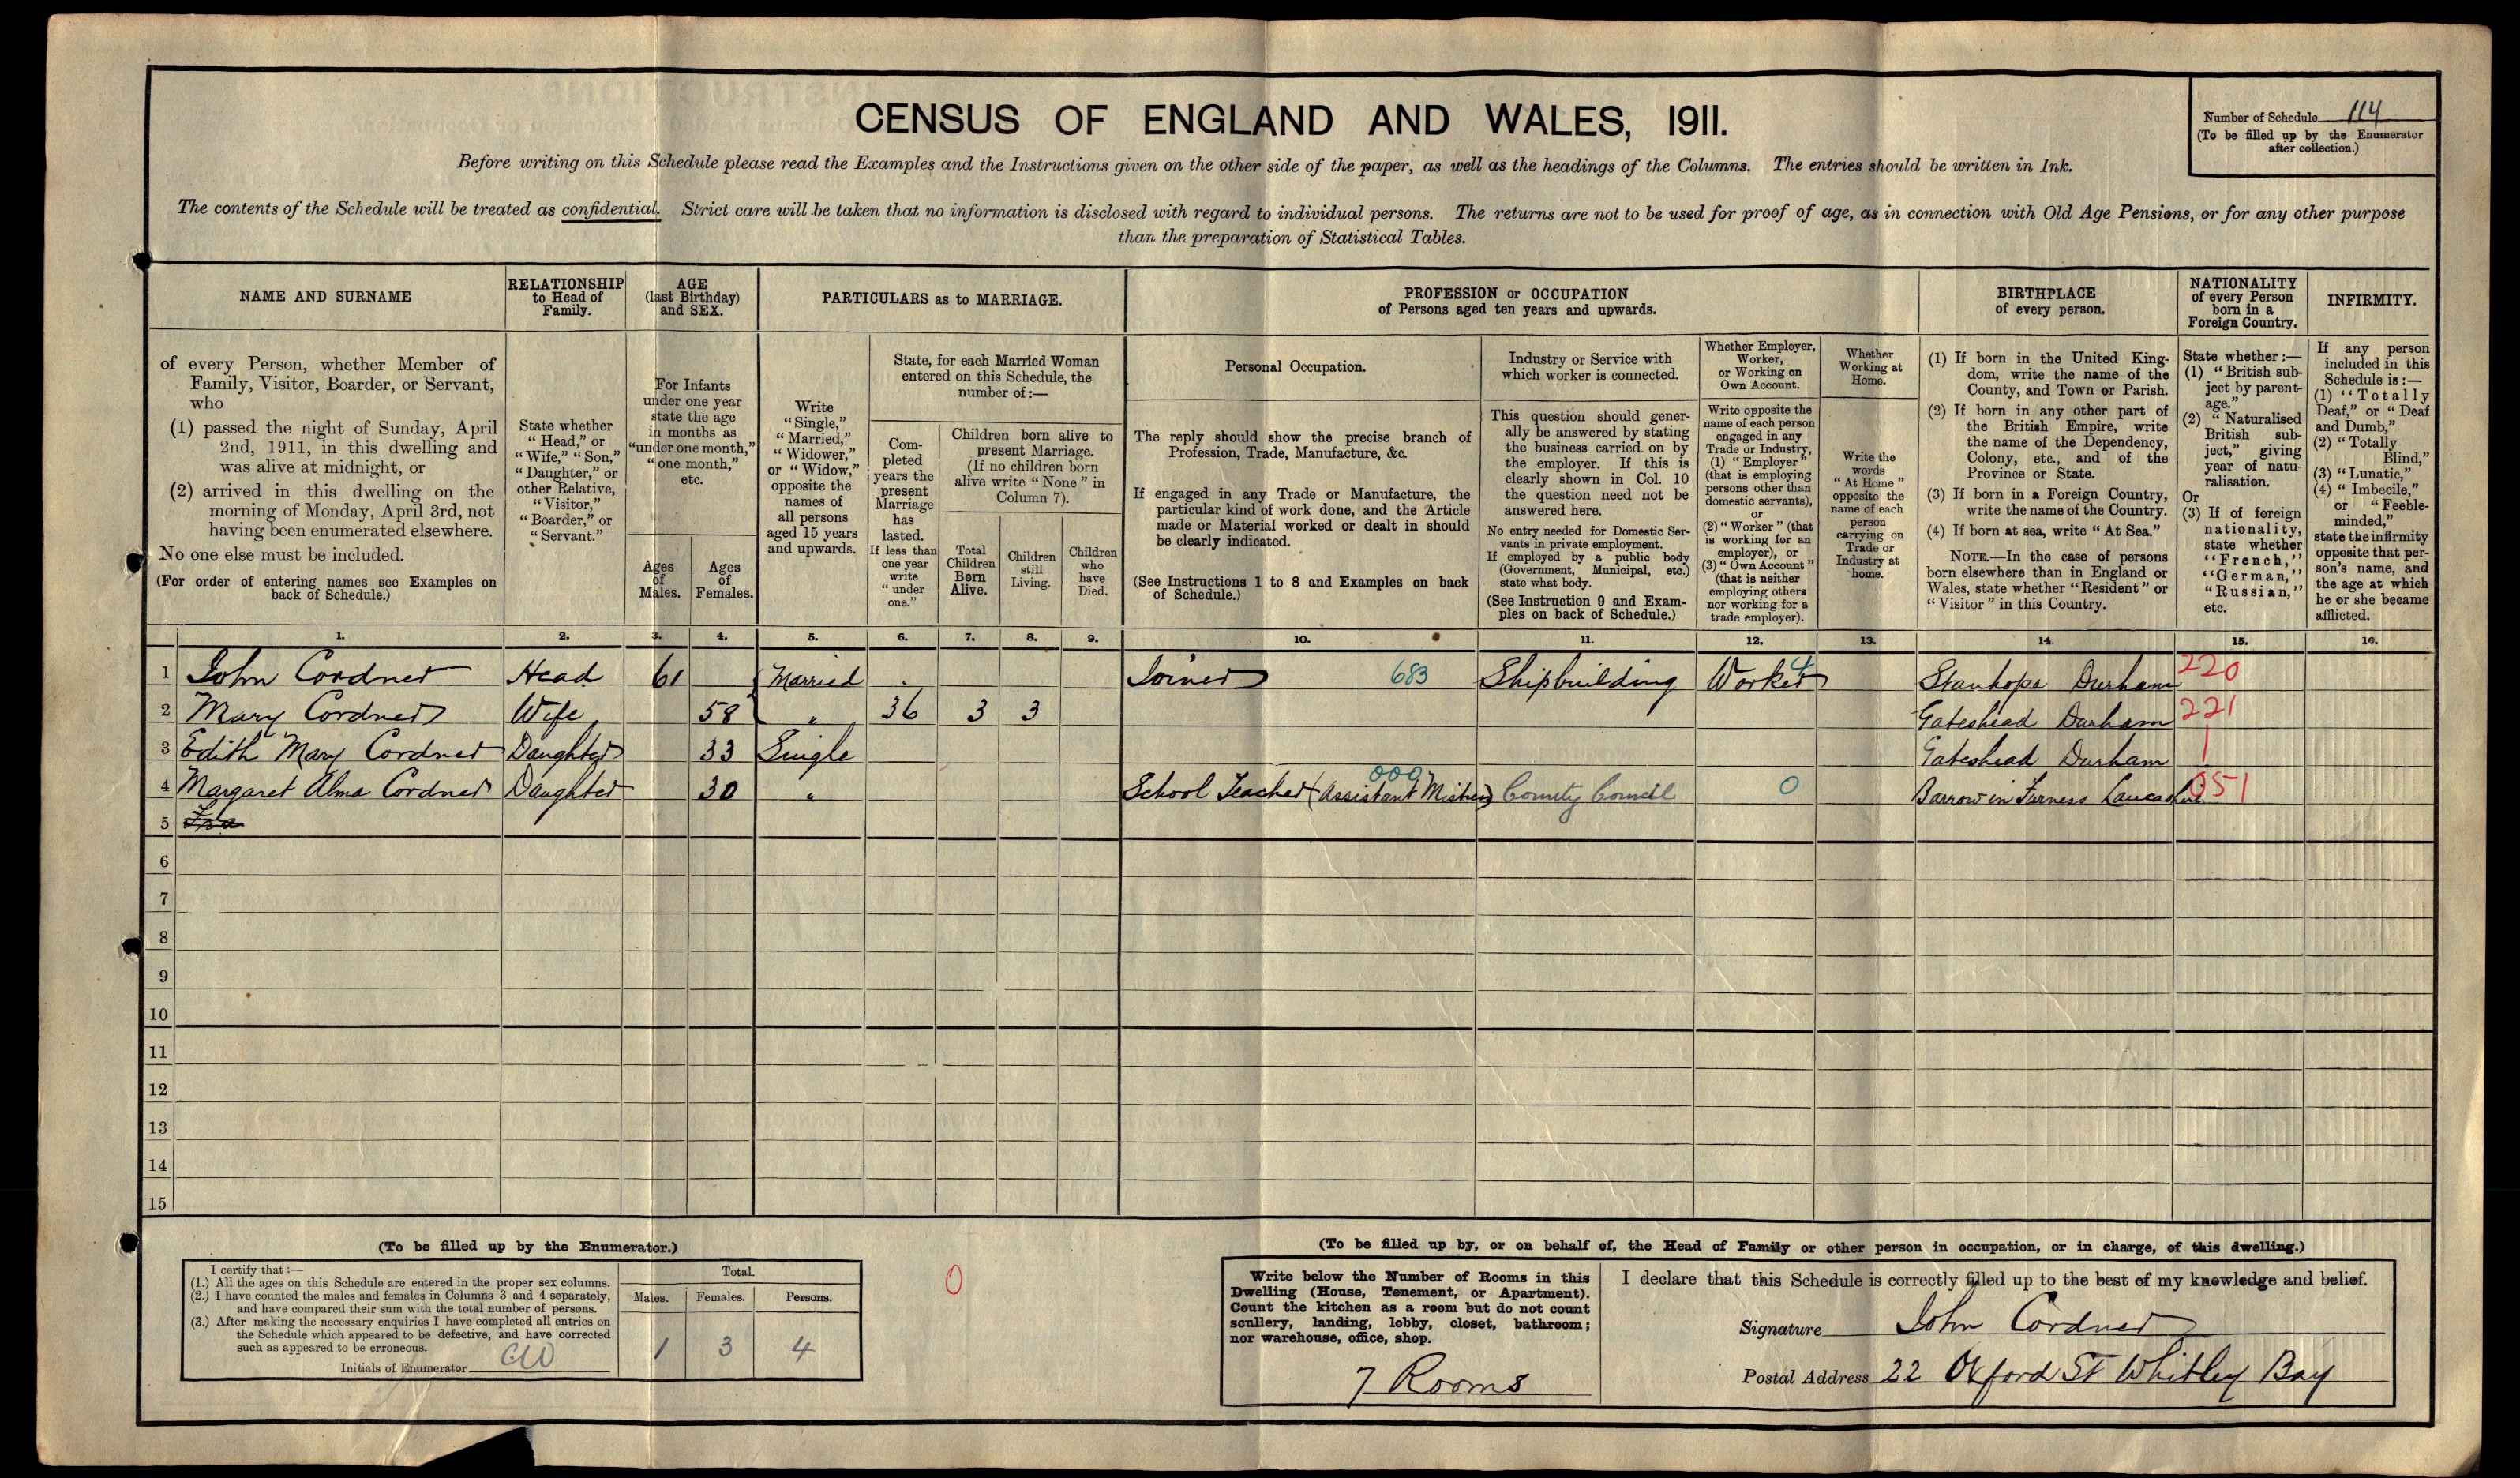 CENSUS OF ENGLAND AND WALES, 1911.
Number of Schedule 114
(To be filled up by the Enumerator
after collection.)
Before writing on this Schedule please read the Examples and the Instructions given on the other side of the paper, as well as the headings of the Columns. The entries should be written in Ink.
The contents of the Schedule will be treated as confidential. Strict care will be taken that no information is disclosed with regard to individual persons. The returns are not to be used for proof of age, as in connection with Old Age Pensions, or for any other purpose
than the preparation of Statistical Tables.
NAME AND SURNAME
of every Person, whether Member of
Family, Visitor, Boarder, or Servant,
who
(1) passed the night of Sunday, April
2nd, 1911, in this dwelling and
was alive at midnight, or
(2) arrived in this dwelling on the
morning of Monday, April 3rd, not
having been enumerated elsewhere.
No one else must be included.
(For order of entering names see Examples on
back of Schedule.)
RELATIONSHIP
to Head of
Family.
State whether
"Head," or
"Wife," "Son,"
"Daughter," or
other Relative,
"Visitor,"
"Boarder," or
"Servant."
AGE
(last Birthday)
and SEX.
For Infants
under one year
state the age
in months as
"under one month,"
"one month,"
etc.
Ages
of
Males.
Ages
of
Females.
PARTICULARS as to MARRIAGE.
Write
"Single,"
"Married,"
"Widower,"
or "Widow,"
opposite the
names of
all persons
aged 15 years
and upwards.
State, for each Married Woman
entered on this Schedule, the
number of:—
Com-
pleted
years the
present
Marriage
has
lasted.
If less than
one year
write
"under
one."
Children born alive to
present Marriage.
(If no children born
alive write "None" in
Column 7).
Total
Children
Born
Alive.
Children
still
Living.
Children
who
have
Died.
PROFESSION or OCCUPATION
of Persons aged ten years and upwards.
Personal Occupation.
The reply should show the precise branch of
Profession, Trade, Manufacture, &c.
If engaged in any Trade or Manufacture, the
particular kind of work done, and the Article
made or Material worked or dealt in should
be clearly indicated.
(See Instructions 1 to 8 and Examples on back
of Schedule.)
Industry or Service with
which worker is connected.
This question should gener-
ally be answered by stating
the business carried on by
the employer. If this is
clearly shown in Col. 10
the question need not be
answered here.
No entry needed for Domestic Ser-
vants in private employment.
If employed by a public body
(Government, Municipal, etc.)
state what body.
(See Instruction 9 and Exam-
ples on back of Schedule.)
Whether Employer,
Worker,
or Working on
Own Account.
Write opposite the
name of each person
engaged in any
Trade or Industry,
(1) "Employer"
(that is employing
persons other than
domestic servants),
or
(2) "Worker" (that
is working for an
employer), or
(3) "Own Account"
(that is neither
employing others
nor working for a
trade employer).
Whether
Working at
Home.
Write the
words
"At Home"
opposite the
name of each
person
carrying on
Trade or
Industry at
home.
BIRTHPLACE
of every person.
(1) If born in the United King-
dom, write the name of the
County, and Town or Parish.
(2) If born in any other part of
the British Empire, write
the name of the Dependency,
Colony, etc., and of the
Province or State.
(3) If born in a Foreign Country,
write the name of the Country.
(4) If born at sea, write "At Sea."
NOTE.—In the case of persons
born elsewhere than in England or
Wales, state whether "Resident" or
"Visitor" in this Country.
NATIONALITY
of every Person
born in a
Foreign Country.
State whether:—
(1) "British sub-
ject by parent-
age."
(2) "Naturalised
British sub-
ject," giving
year of natu-
ralisation.
Or
(3) If of foreign
nationality,
state whether
"French,"
"German,"
"Russian,"
etc.
INFIRMITY.
If any person
included in this
Schedule is:—
(1) "Totally
Deaf," or "Deaf
and Dumb,"
(2) "Totally
Blind,"
(3) "Lunatic,"
(4) "Imbecile,"
or "Feeble-
minded,"
state the infirmity
opposite that per-
son's name, and
the age at which
he or she became
afflicted.
1. 2. 3. 4. 5. 6. 7. 8. 9. 10. 11. 12. 13. 14. 15. 16.
1 John Cordner Head 61 Married Joiner 683 Shipbuilding Worker 4 Stanhope Durham 220
2 Mary Cordner Wife 58 " 36 3 3 Gateshead Durham 221
3 Edith Mary Cordner Daughter 33 Single Gateshead Durham |
4 Margaret Alma Cordner Daughter 30 " School Teacher (Assistant Mistress) 000 County Council 0 Barrow in Furness Lancashire 051
5
6
7
8
9
10
11
12
13
14
15
(To be filled up by the Enumerator.)
I certify that:—
(1.) All the ages on this Schedule are entered in the proper sex columns.
(2.) I have counted the males and females in Columns 3 and 4 separately,
and have compared their sum with the total number of persons.
(3.) After making the necessary enquiries I have completed all entries on
the Schedule which appeared to be defective, and have corrected
such as appeared to be erroneous.
Initials of Enumerator
Total.
Males. Females. Persons.
1 3 4
0
(To be filled up by, or on behalf of, the Head of Family or other person in occupation, or in charge, of this dwelling.)
Write below the Number of Rooms in this
Dwelling (House, Tenement, or Apartment).
Count the kitchen as a room but do not count
scullery, landing, lobby, closet, bathroom;
nor warehouse, office, shop.
7 Rooms
I declare that this Schedule is correctly filled up to the best of my knowledge and belief.
Signature John Cordner
Postal Address 22 Oxford St Whitley Bay